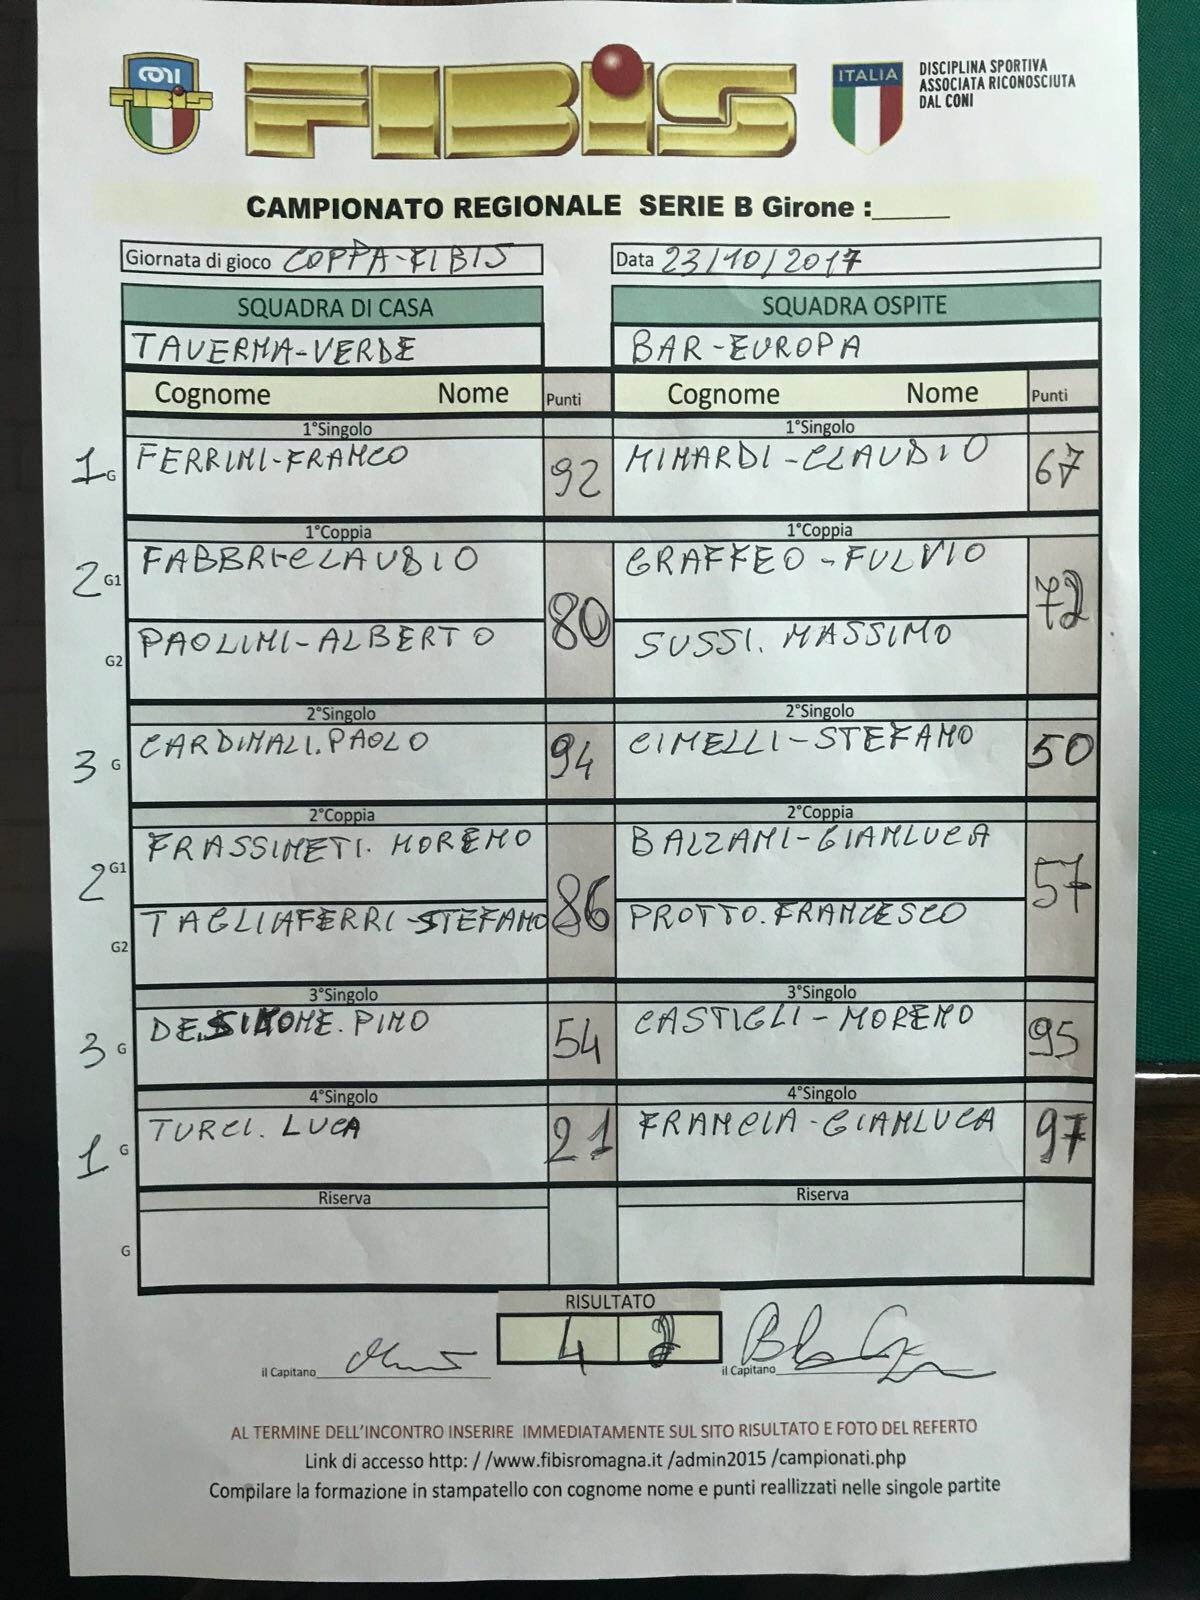 CONI
FIBIS
FIBIS
ITALIA
DISCIPLINA SPORTIVA
ASSOCIATA RICONOSCIUTA
DAL CONI
CAMPIONATO REGIONALE SERIE B Girone :______
Giornata di gioco COPPA-FIBIS Data 23/10/2017
SQUADRA DI CASA SQUADRA OSPITE
TAVERNA-VERDE BAR-EUROPA
Cognome Nome Punti Cognome Nome Punti
1°Singolo 1°Singolo
1 G FERRINI-FRANCO 92 MINARDI-CLAUDIO 67
1°Coppia 1°Coppia
2 G1 FABBRI-CLAUDIO 80 GRAFFEO-FULVIO 72
G2 PAOLINI-ALBERTO SUSSI. MASSIMO
2°Singolo 2°Singolo
3 G CARDINALI.PAOLO 94 CINELLI-STEFANO 50
2°Coppia 2°Coppia
2 G1 FRASSINETI. MORENO 86 BALZANI-GIANLUCA 57
G2 TAGLIAFERRI-STEFANO PROTTO.FRANCESCO
3°Singolo 3°Singolo
3 G DE.SIMONE.PINO 54 CASTIGLI-MORENO 95
4°Singolo 4°Singolo
1 G TURCI. LUCA 21 FRANCIA-GIANLUCA 97
Riserva Riserva
G
RISULTATO
4 2
il Capitano il Capitano
AL TERMINE DELL'INCONTRO INSERIRE IMMEDIATAMENTE SUL SITO RISULTATO E FOTO DEL REFERTO
Link di accesso http: / /www.fibisromagna.it /admin2015 /campionati.php
Compilare la formazione in stampatello con cognome nome e punti reallizzati nelle singole partite